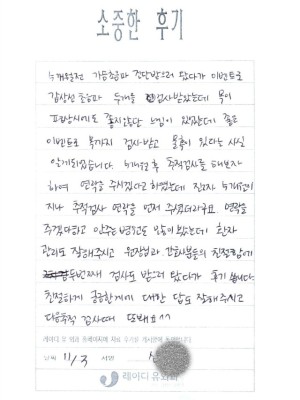 소중한 후기
누개월전 가슴초음파 진단받으러 왔다가 이벤트로
갑상선 초음파 두개를 검사받았는데 목이
피곤시에도 좋지않단 느낌이 있었는데 좋은
이벤트로 목까지 검사받고 물혹이 있다는 사실
알게되었습니다. 누개월후 추적검사를 해보자
하여 연락을 주시겠다고 하였는데 진짜 누개월이
지나 추적검사 연락을 먼저 주셨더라구요. 연락을
주겠다하고 안주는 병원도 많이봤는데 환자
관리도 잘해주시고 원장님과 간호사분들의 친절함에
두번째 검사도 받으러 왔다가 후기 씁니다.
친절하게 궁금한게에 대한 답도 잘해주시고
다음추적 검사때 또봬요^^
레이디 유 외과 홈페이지에 치료 후기를 게시함에 동의합니다
날짜 11/3 서명
레이디유외과